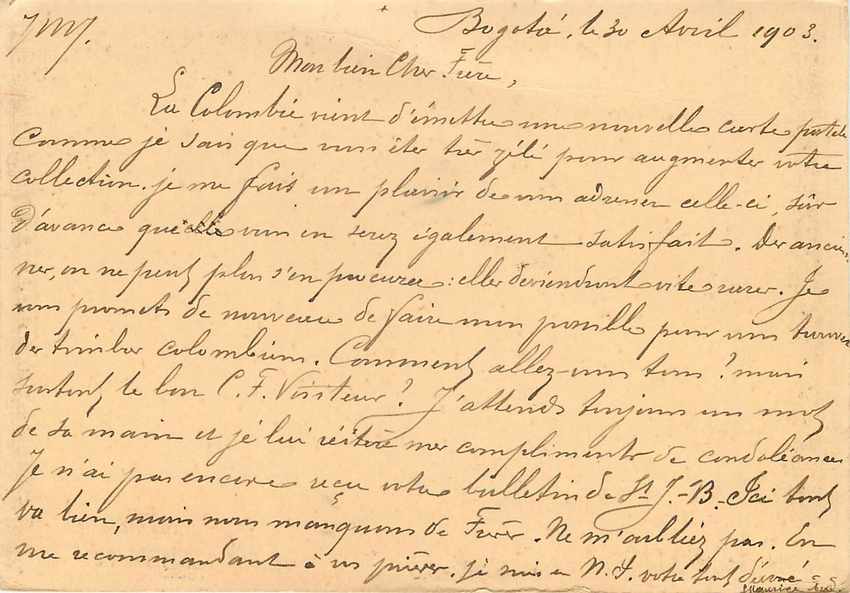 Bogotá, le 30 Avril 1903.
Mon bien Cher Frère,
La Colombie vient d'émettre une nouvelle carte postale
comme je sais que vous êtes très zélé pour augmenter votre
collection. je me fais un plaisir de vous adresser celle-ci, sûr
d'avance que vous en serez également satisfait. Des ancien-
nes, on ne peut plus s'en procurer : elles deviendront vite rares. Je
vous promets de nouveau de faire mon possible pour vous trouver
des timbres colombiens. Comment allez-vous tous ? mais
surtout, le bon C. F. Visiteur ? J'attends toujours un mot
de sa main et je lui réitère mes compliments de condoléance
Je n'ai pas encore reçu votre bulletin de St J.-B. Ici tout
va bien, mais nous manquons de Frères. Ne m'oubliez pas. En
me recommandant à vos prières. je suis en N. S. votre tout dévoué
Maurice